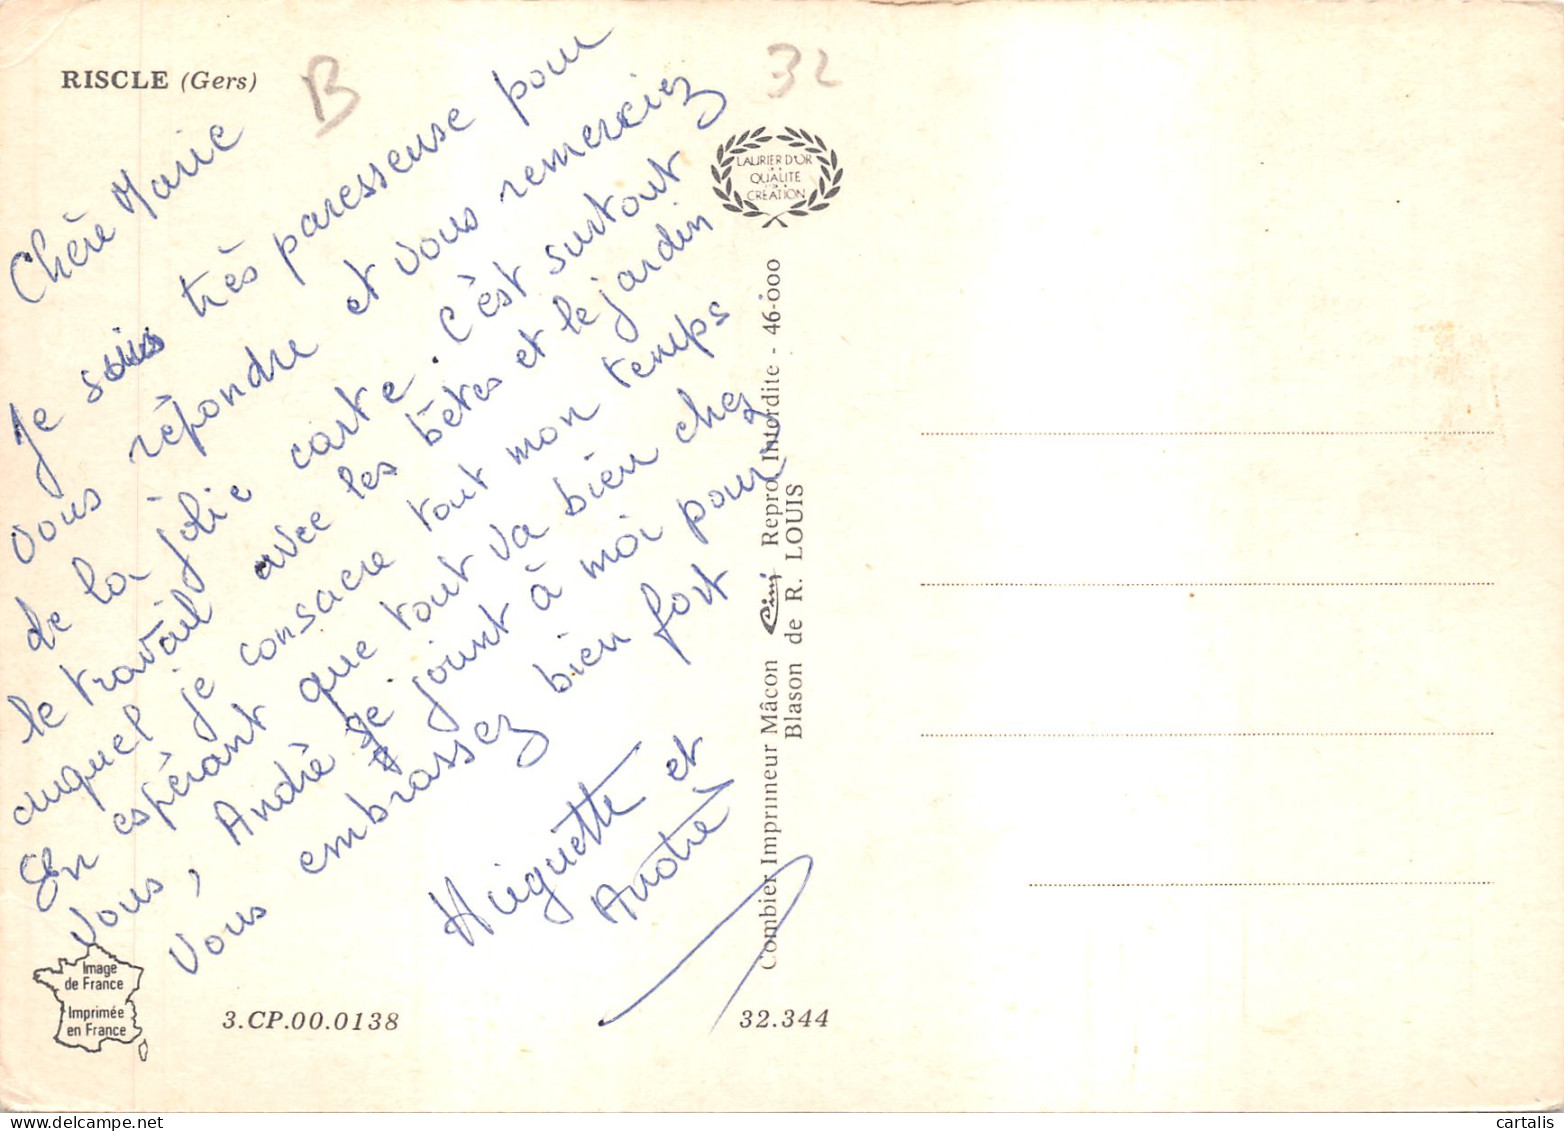 RISCLE (Gers)
B
32
Chère Marie
Je suis très paresseuse pour
vous répondre et vous remerciez
de la jolie carte. C'est surtout
le travail avec les bêtes et le jardin
auquel je consacre tout mon temps
En espérant que tout va bien chez
vous, André se joint à moi pour
vous embrassez bien fort
Huguette et
André
LAURIER D'OR
QUALITE
CRÉATION
Combier Imprimeur Mâcon Cim Repro Interdite - 46-000
Blason de R. LOUIS
Image
de France
Imprimée
en France
3.CP.00.0138
32.344
delcampe.net
cartalis